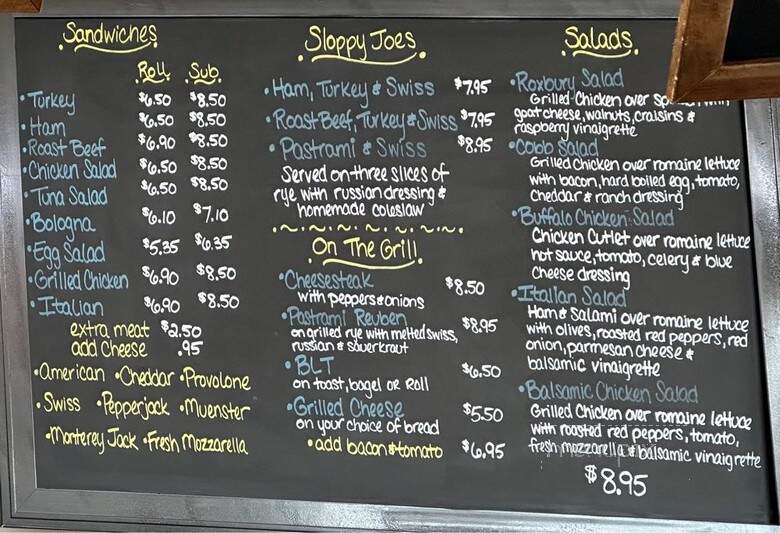 Sandwiches
Roll Sub
• Turkey $6.50 $8.50
• Ham $6.50 $8.50
• Roast Beef $6.90 $8.50
• Chicken Salad $6.50 $8.50
• Tuna Salad $6.50 $8.50
• Bologna $6.10 $7.10
• Egg Salad $5.35 $6.35
• Grilled Chicken $6.90 $8.50
• Italian $6.90 $8.50
extra meat $2.50
add cheese .95
• American • Cheddar • Provolone
• Swiss • Pepperjack • Muenster
• Monterey Jack • Fresh Mozzarella
Sloppy Joes
• Ham, Turkey & Swiss $7.95
• Roast Beef, Turkey & Swiss $7.95
• Pastrami & Swiss $8.95
Served on three slices of
rye with russian dressing &
homemade coleslaw
On The Grill
• Cheesesteak $8.50
with peppers & onions
• Pastrami Reuben $8.95
on grilled rye with melted swiss,
russian & sauerkraut
• BLT $6.50
on toast, bagel or Roll
• Grilled Cheese $5.50
on your choice of bread
• add bacon & tomato $6.95
Salads
• Roxbury Salad
Grilled Chicken over
goat cheese, walnuts, craisins &
raspberry vinaigrette
• Cobb Salad
Grilled Chicken over romaine lettuce
with bacon, hard boiled egg, tomato,
Cheddar & ranch dressing
• Buffalo Chicken Salad
Chicken Cutlet over romaine lettuce
hot sauce, tomato, celery & blue
Cheese dressing
• Italian Salad
Ham & Salami over romaine lettuce
with olives, roasted red peppers, red
onion, parmesan cheese &
balsamic vinaigrette
• Balsamic Chicken Salad
Grilled Chicken over romaine lettuce
with roasted red peppers, tomato,
fresh mozzarella & balsamic vinaigrette
$8.95